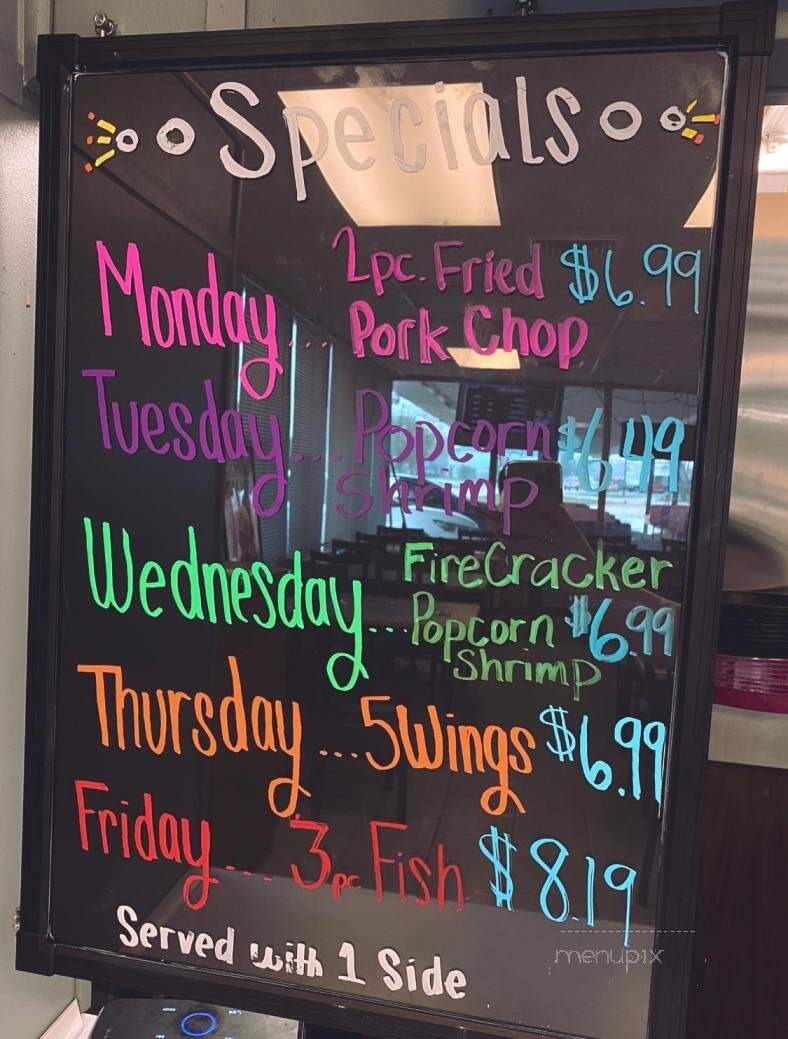 Specials
Monday... 2pc. Fried $6.99
Pork Chop
Tuesday... Popcorn $6.49
Shrimp
Wednesday... FireCracker
Popcorn $6.99
Shrimp
Thursday... 5 Wings $6.99
Friday... 3pc Fish $8.19
Served with 1 Side
menupix